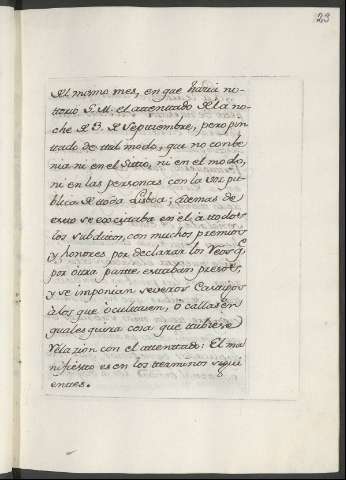 23
del mismo mes, en que hacia no-
torio S. M. el attenttado de la no-
che de 3. de Septtiembre, pero pin-
ttado de ttal modo, que no conbe-
nia ni en el Sittio, ni en el modo,
ni en las personas con la voz pu-
blica de toda Lisboa; ademas de
estto se excittaba en el à ttodos
los subdittos, con muchos premios
y honores por declarar los Reos q.^e
por ottra partte esttaban presos,
y se imponian severos Casttigos
à los que ocultasen, ò callasen
qualesquiera cosa que tubiese
relazion con el attenttado: El ma-
nifiestto es en los tterminos sigui-
enttes.